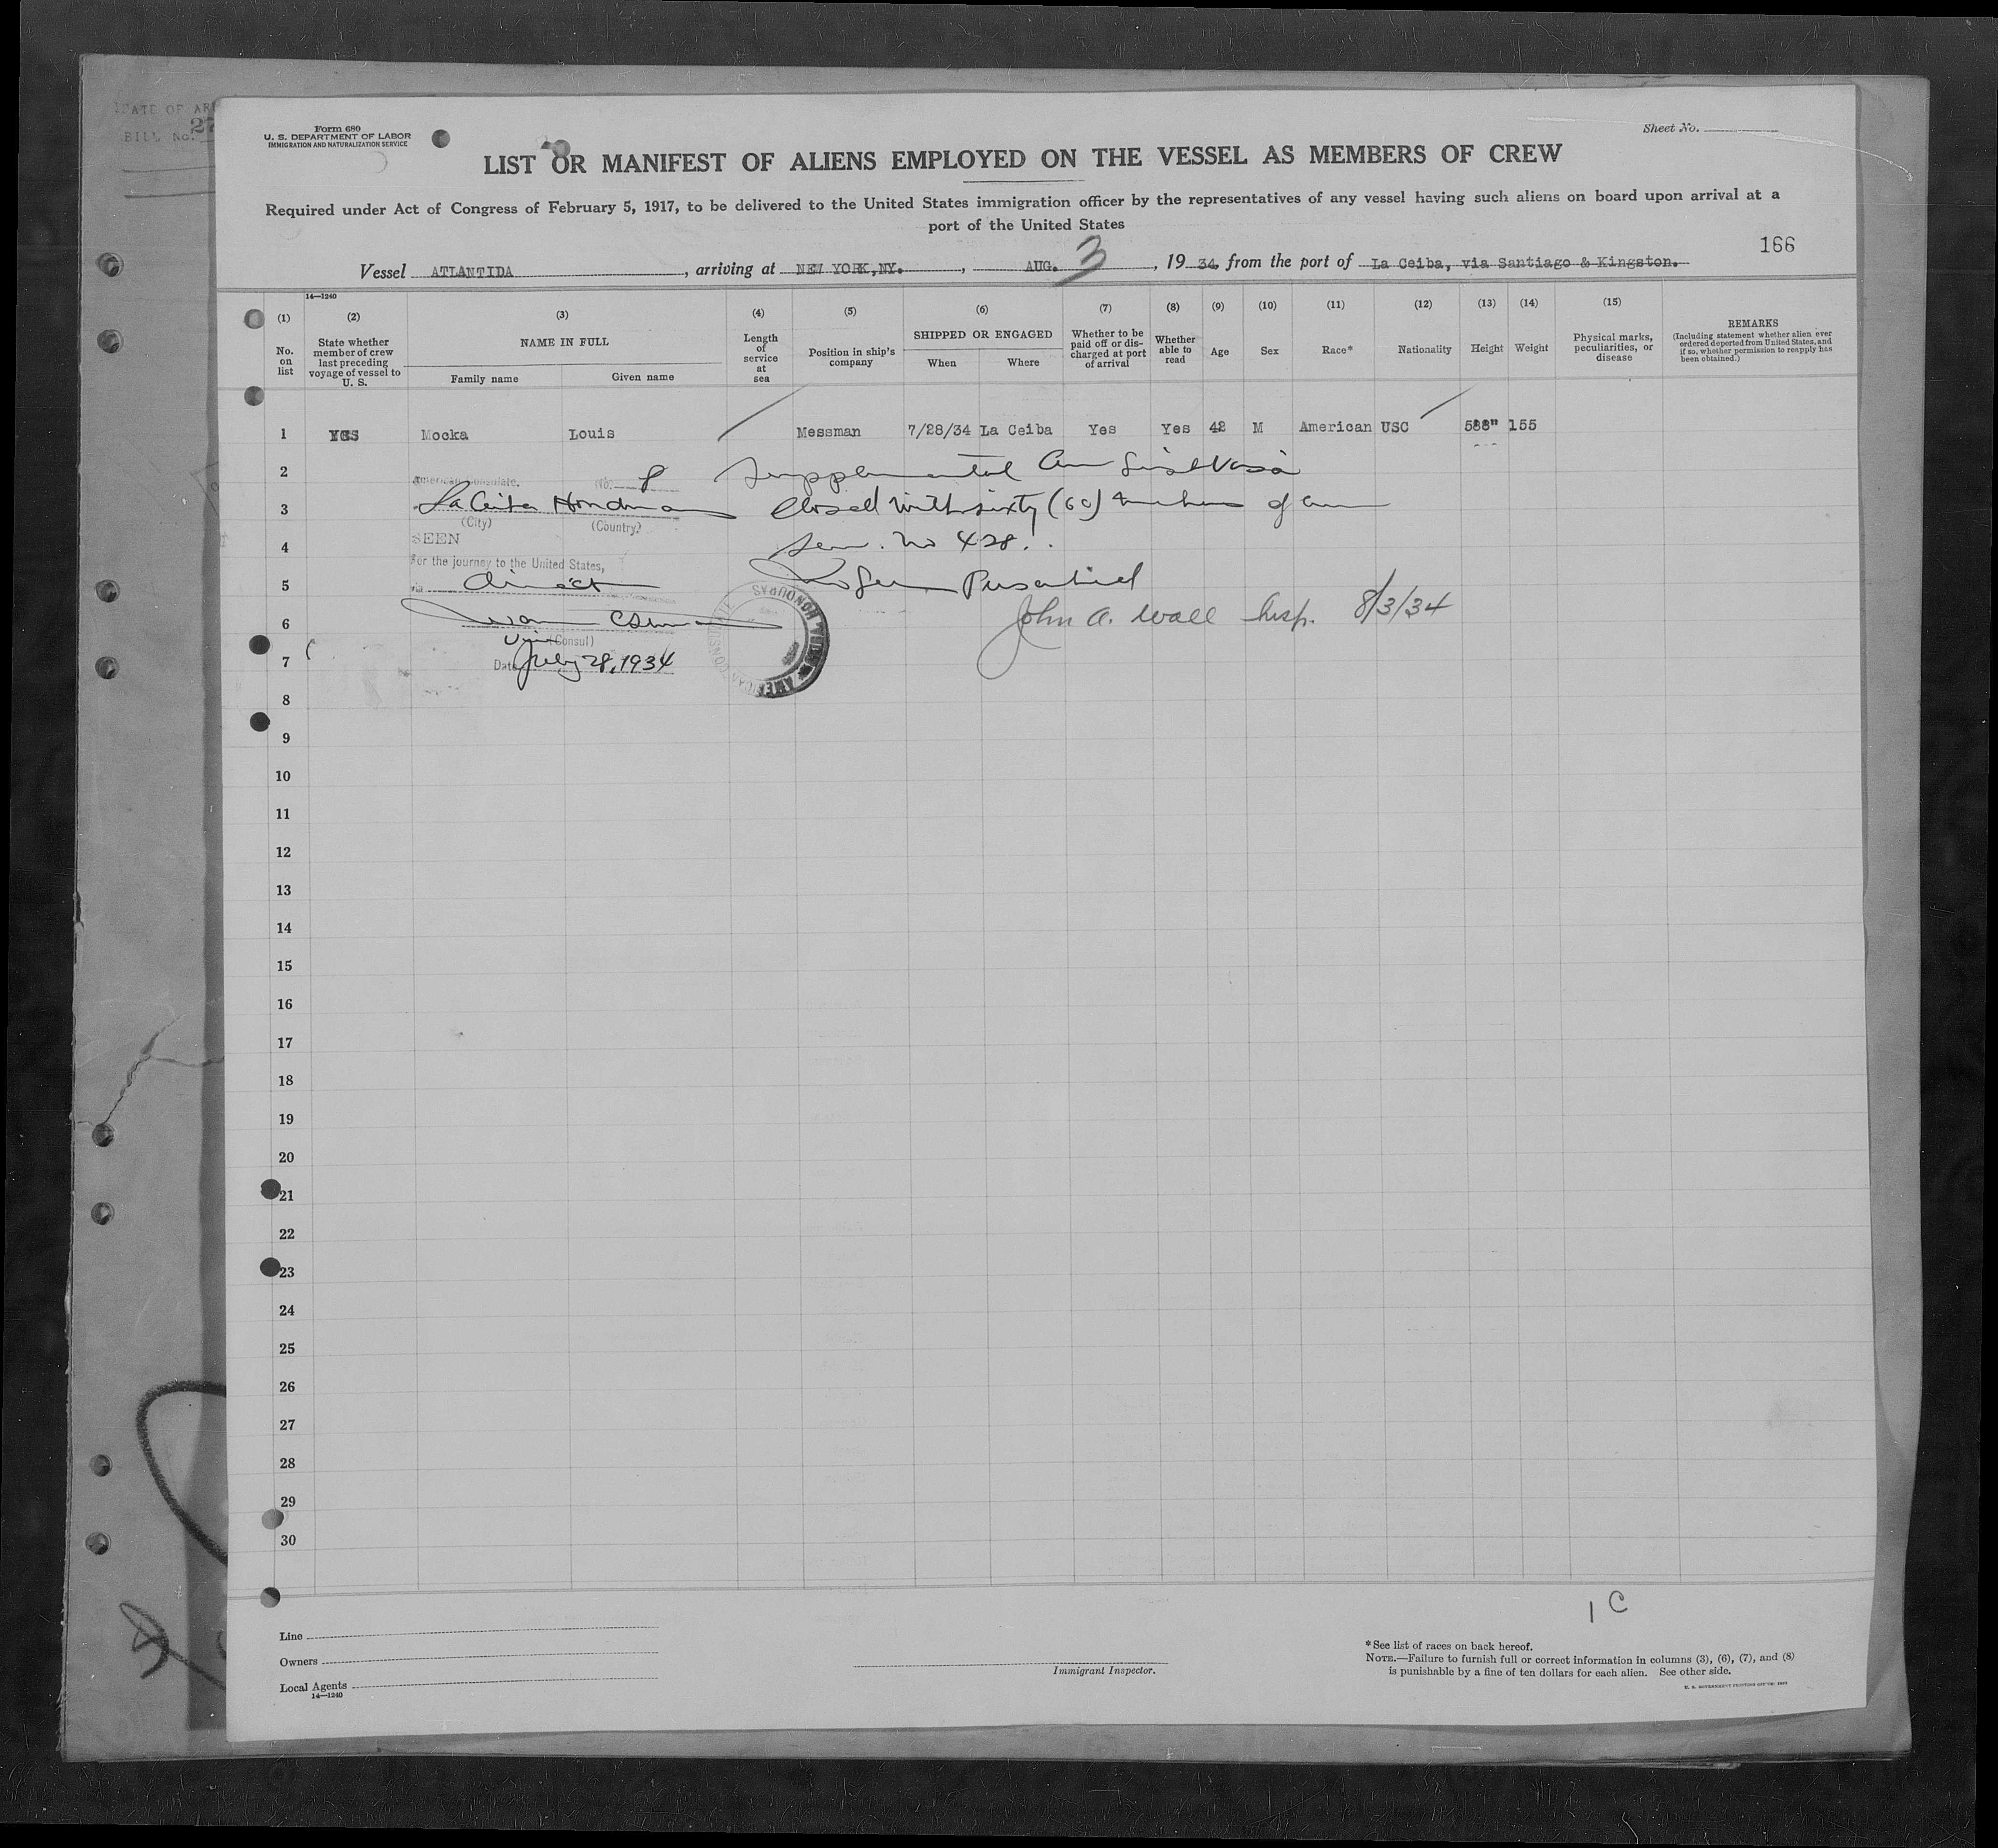 DATE OF AR
BILL No. 27
Form 680
U. S. DEPARTMENT OF LABOR
IMMIGRATION AND NATURALIZATION SERVICE
Sheet No.
LIST OR MANIFEST OF ALIENS EMPLOYED ON THE VESSEL AS MEMBERS OF CREW
Required under Act of Congress of February 5, 1917, to be delivered to the United States immigration officer by the representatives of any vessel having such aliens on board upon arrival at a
port of the United States
166
Vessel ATLANTIDA, arriving at NEW YORK,NY., AUG. 3, 1934, from the port of La Ceiba, via Santiago & Kingston.
14—1240
(1) (2) (3) (4) (5) (6) (7) (8) (9) (10) (11) (12) (13) (14) (15)
No. on list
State whether member of crew last preceding voyage of vessel to U. S.
NAME IN FULL
Family name
Given name
Length of service at sea
Position in ship's company
SHIPPED OR ENGAGED
When
Where
Whether to be paid off or discharged at port of arrival
Whether able to read
Age
Sex
Race*
Nationality
Height
Weight
Physical marks, peculiarities, or disease
REMARKS
(Including statement whether alien ever ordered deported from United States, and if so, whether permission to reapply has been obtained.)
1 YES Mocka Louis Messman 7/28/34 La Ceiba Yes Yes 42 M American USC 588" 155
2 American Consulate. No. 8 Supplemental
3 La Ceiba Honduras Closed with sixty (60) members of
(City) (Country)
4 SEEN
no 428.
For the journey to the United States,
5 via direct
6 John A. Wall Insp. 8/3/34
Vice (Consul)
7 Date July 28, 1934
AMERICAN HONDURAS
8
9
10
11
12
13
14
15
16
17
18
19
20
21
22
23
24
25
26
27
28
29
30
1 C
Line
Owners
Local Agents
14—1240
Immigrant Inspector.
*See list of races on back hereof.
NOTE.—Failure to furnish full or correct information in columns (3), (6), (7), and (8)
is punishable by a fine of ten dollars for each alien. See other side.